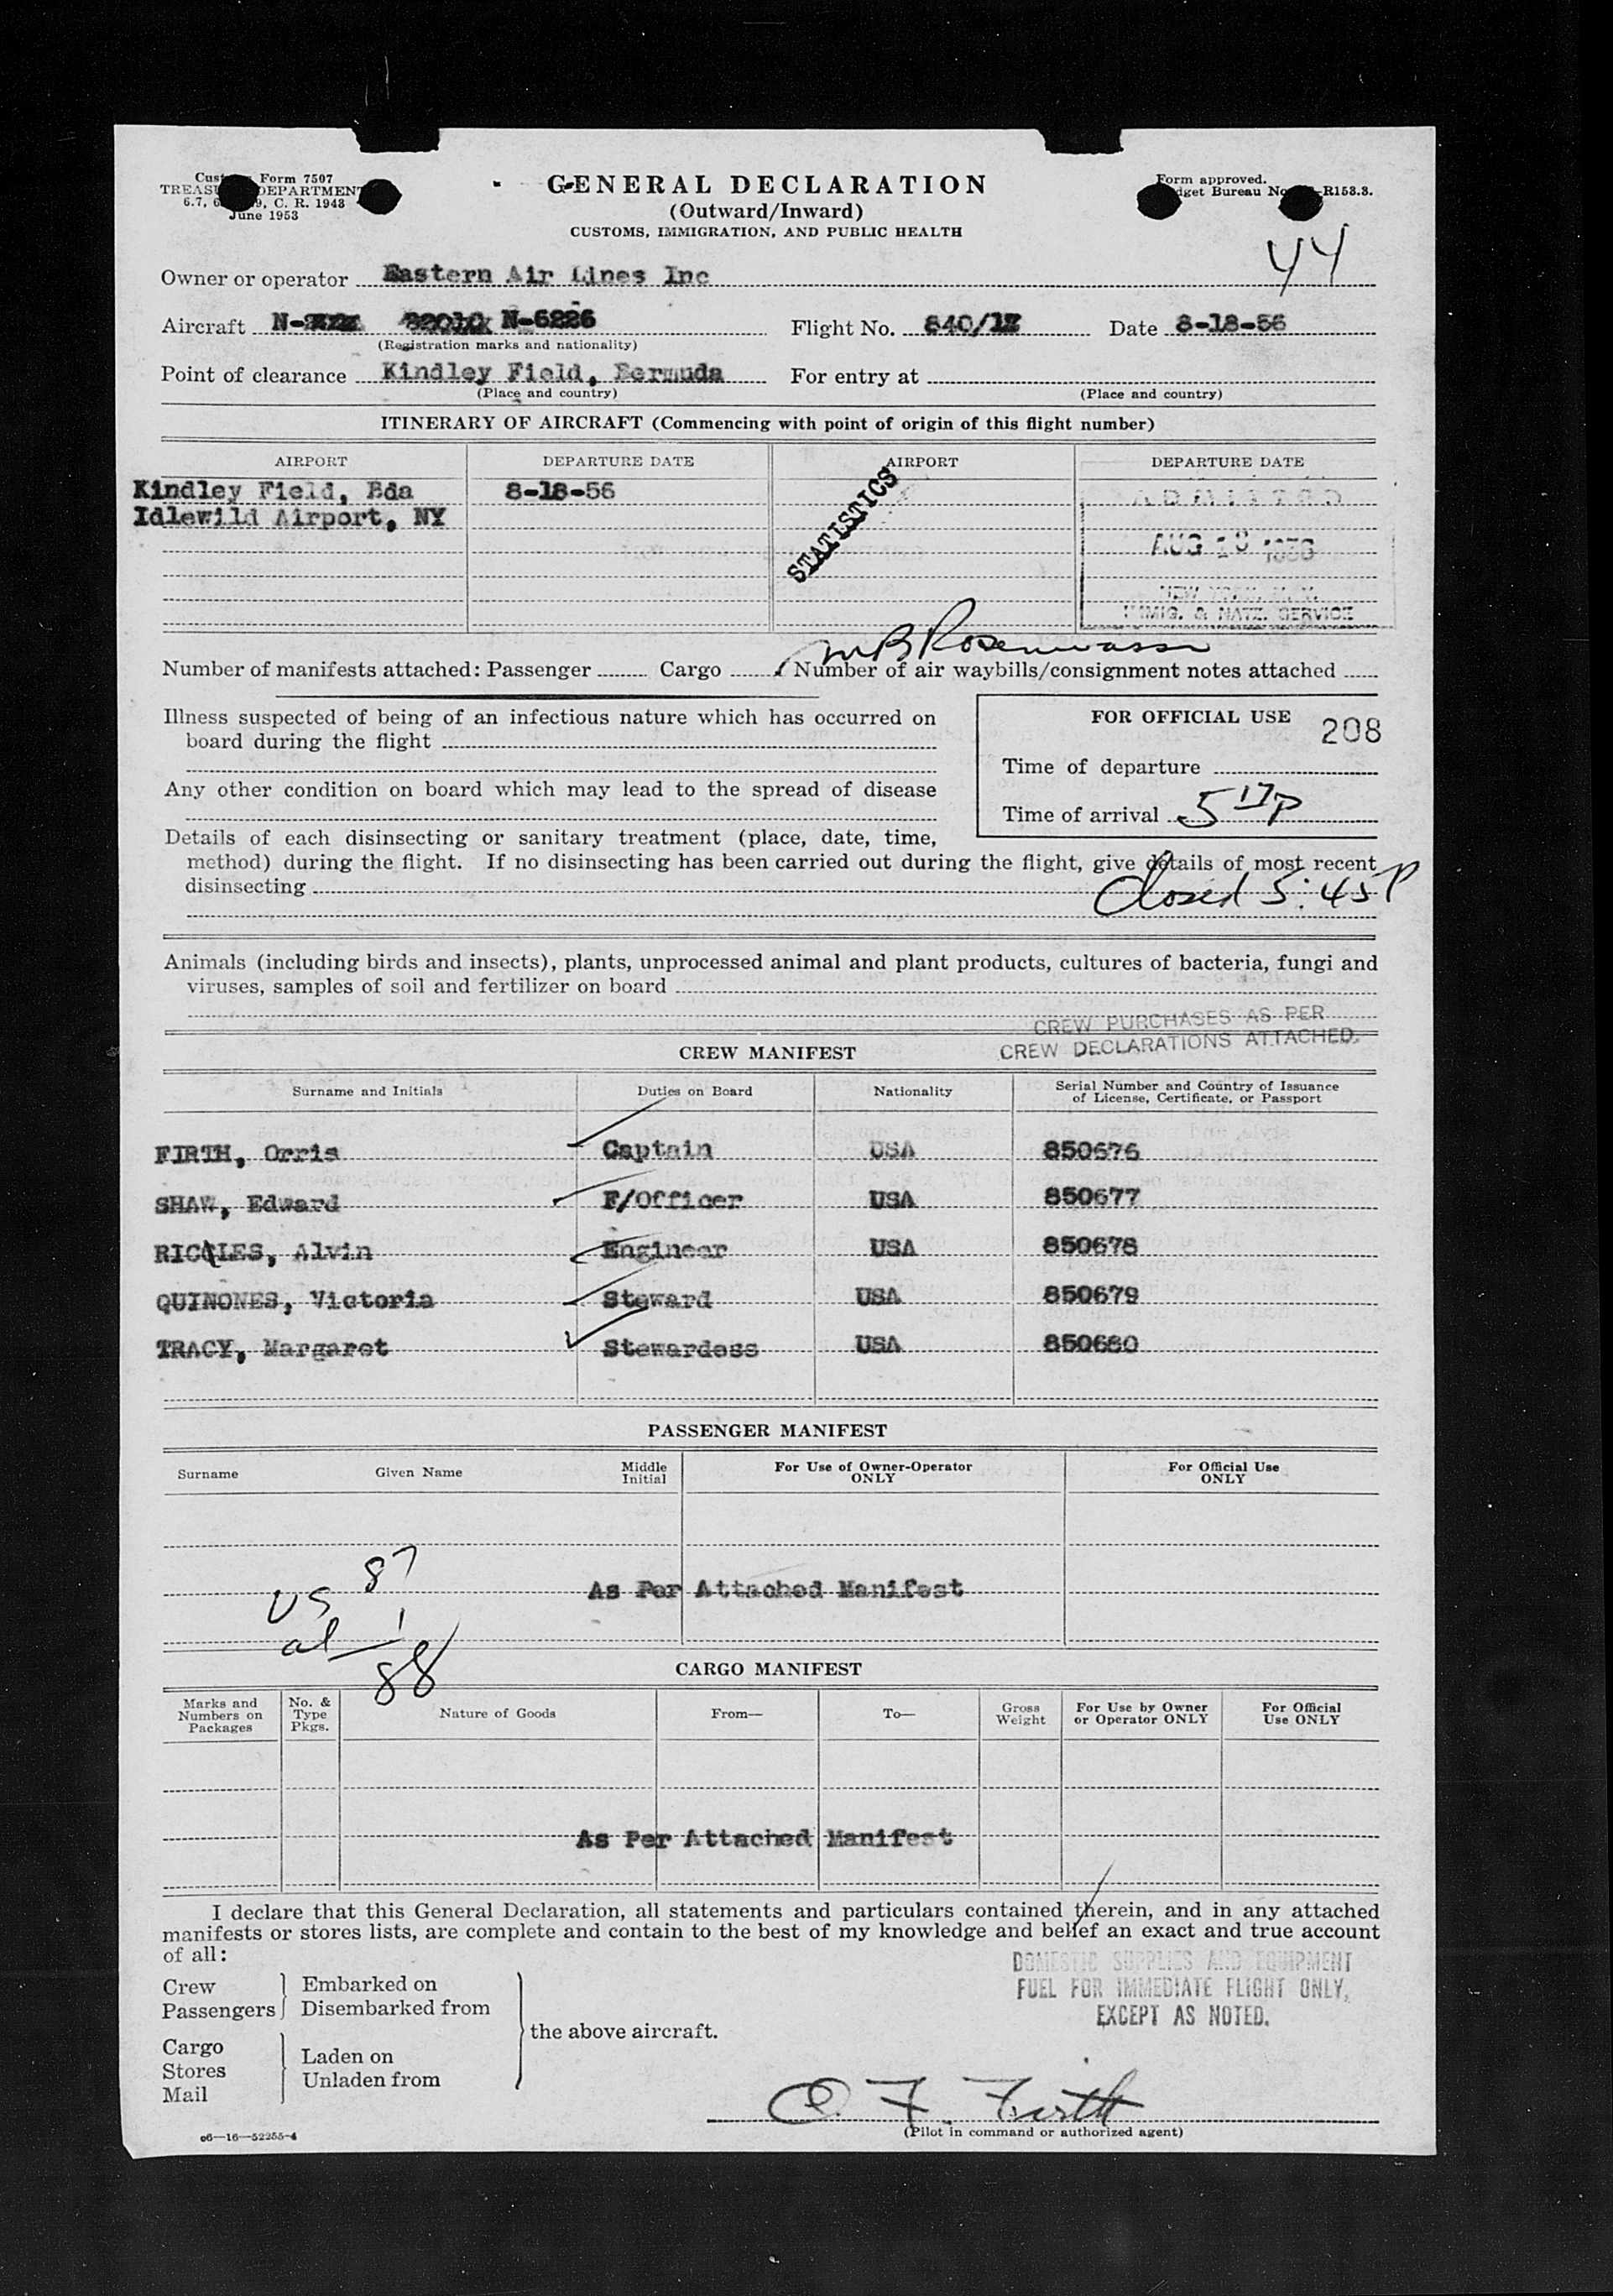 Form 7507
TREASU DEPARTMENT
6.7, 6 9, C. R. 1948
June 1953
GENERAL DECLARATION
(Outward/Inward)
CUSTOMS, IMMIGRATION, AND PUBLIC HEALTH
Form approved.
dget Bureau No -R153.3.
44
Owner or operator Eastern Air Lines Inc
Aircraft N- N-6226 Flight No. 840/ Date 8-18-56
(Registration marks and nationality)
Point of clearance Kindley Field, Bermuda For entry at
(Place and country) (Place and country)
ITINERARY OF AIRCRAFT (Commencing with point of origin of this flight number)
AIRPORT DEPARTURE DATE AIRPORT DEPARTURE DATE
Kindley Field, Bda 8-18-56
Idlewild Airport, NY
STATISTICS
ADMITTED
AUG 18 1956
NEW YORK, N. Y.
IMMIG. & NATZ. SERVICE
Number of manifests attached: Passenger Cargo Number of air waybills/consignment notes attached
Illness suspected of being of an infectious nature which has occurred on
board during the flight
FOR OFFICIAL USE 208
Time of departure
Any other condition on board which may lead to the spread of disease
Time of arrival 5 17 P
Details of each disinsecting or sanitary treatment (place, date, time,
method) during the flight. If no disinsecting has been carried out during the flight, give details of most recent
disinsecting Closed 5:45 P
Animals (including birds and insects), plants, unprocessed animal and plant products, cultures of bacteria, fungi and
viruses, samples of soil and fertilizer on board
CREW PURCHASES AS PER
CREW DECLARATIONS ATTACHED.
CREW MANIFEST
Surname and Initials Duties on Board Nationality Serial Number and Country of Issuance
of License, Certificate, or Passport
FIRTH, Orris Captain USA 850676
SHAW, Edward F/Officer USA 850677
Alvin Engineer USA 850678
QUINONES, Victoria Steward USA 850679
TRACY, Margaret Stewardess USA 850680
PASSENGER MANIFEST
Surname Given Name Middle
Initial For Use of Owner-Operator
ONLY For Official Use
ONLY
US 87
As Per Attached Manifest
al 1
88
CARGO MANIFEST
Marks and
Numbers on
Packages No. &
Type
Pkgs. Nature of Goods From— To— Gross
Weight For Use by Owner
or Operator ONLY For Official
Use ONLY
As Per Attached Manifest
I declare that this General Declaration, all statements and particulars contained therein, and in any attached
manifests or stores lists, are complete and contain to the best of my knowledge and belief an exact and true account
of all:
DOMESTIC SUPPLIES AND EQUIPMENT
FUEL FOR IMMEDIATE FLIGHT ONLY,
EXCEPT AS NOTED.
Crew Embarked on
Passengers Disembarked from
the above aircraft.
Cargo
Stores Laden on
Mail Unladen from
O. F. Firth
(Pilot in command or authorized agent)
c6—16—52255-4